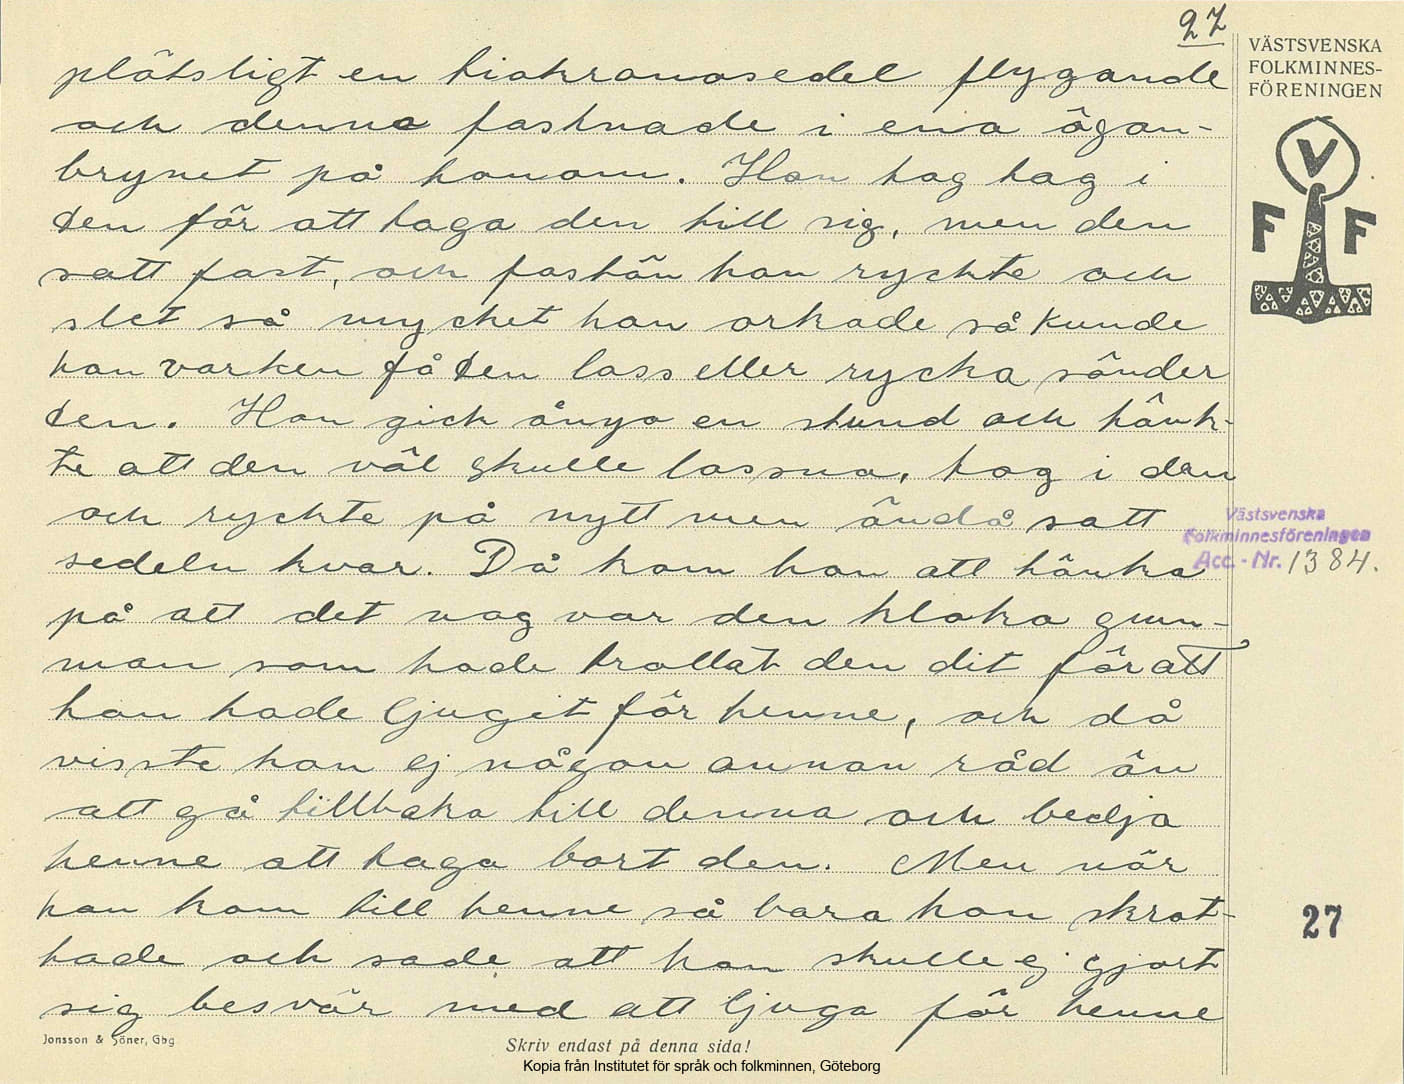 27
VÄSTSVENSKA
FOLKMINNES-
FÖRENINGEN
V
F F
plötsligt en tiokronosedel flygande
och denna fastnade i ena ögon-
brynet på honom. Han tog tag i
den för att taga den till sig, men den
satt fast, och fastän han ryckte och
slet så mycket han orkade så kunde
han varken få den loss eller rycka sönder
den. Han gick ånyo en stund och tänk-
te att den väl skulle lossna, tog i den
och ryckte på nytt men ändå satt
sedeln kvar. Då kom han att tänka
på att det nog var den kloka gum-
man som hade trollat den dit för att
han hade ljugit för henne, och då
visste han ej någon annan råd än
att gå tillbaka till denna och bedja
henne att taga bort den. Men när
han kom till henne så bara hon skrat-
tade och sade att han skulle ej gjort
sig besvär med att ljuga för henne
Västsvenska
Folkminnesföreningen
Acc.-Nr. 1384.
27
Jonsson & Söner, Gbg
Skriv endast på denna sida!
Kopia från Institutet för språk och folkminnen, Göteborg